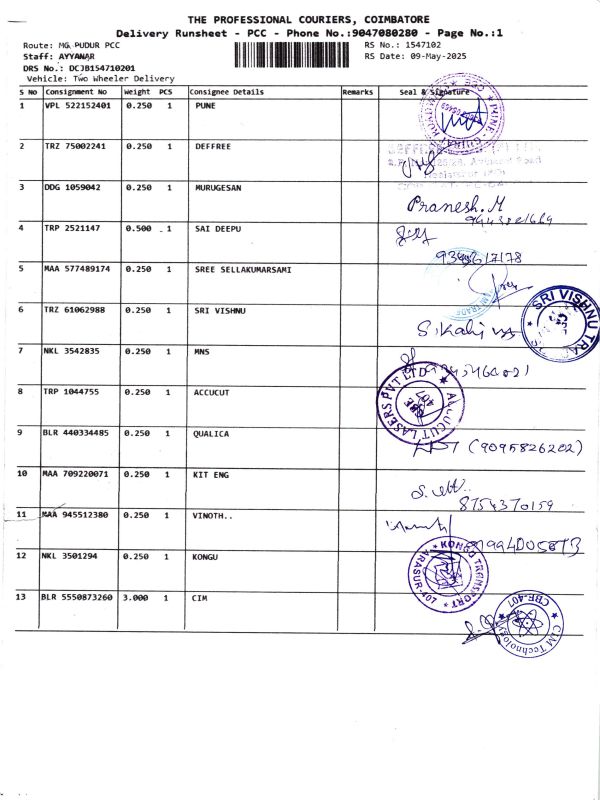 THE PROFESSIONAL COURIERS, COIMBATORE
Delivery Runsheet - PCC - Phone No.:9047080280 - Page No.:1
Route: MG PUDUR PCC
RS No.: 1547102
Staff: AYYANAR
RS Date: 09-May-2025
DRS No.: DCJB154710201
Vehicle: Two Wheeler Delivery
S No Consignment No Weight PCS Consignee Details Remarks Seal & Signature
1 VPL 522152401 0.250 1 PUNE
2 TRZ 75002241 0.250 1 DEFFREE
3 DDG 1059042 0.250 1 MURUGESAN
Pranesh.M
4 TRP 2521147 0.500 1 SAI DEEPU
5 MAA 577489174 0.250 1 SREE SELLAKUMARSAMI
6 TRZ 61062988 0.250 1 SRI VISHNU
SRI VISHNU
7 NKL 3542835 0.250 1 MNS
8 TRP 1044755 0.250 1 ACCUCUT
ACCUCUT LASERS PVT LTD
CBE
407
9 BLR 440334485 0.250 1 QUALICA
(9095826202)
10 MAA 709220071 0.250 1 KIT ENG
8754370159
11 MAA 945512380 0.250 1 VINOTH..
12 NKL 3501294 0.250 1 KONGU
KONGU TRANSPORT
ARASUR-407
13 BLR 5550873260 3.000 1 CIM
CBE-407
CIM Technology